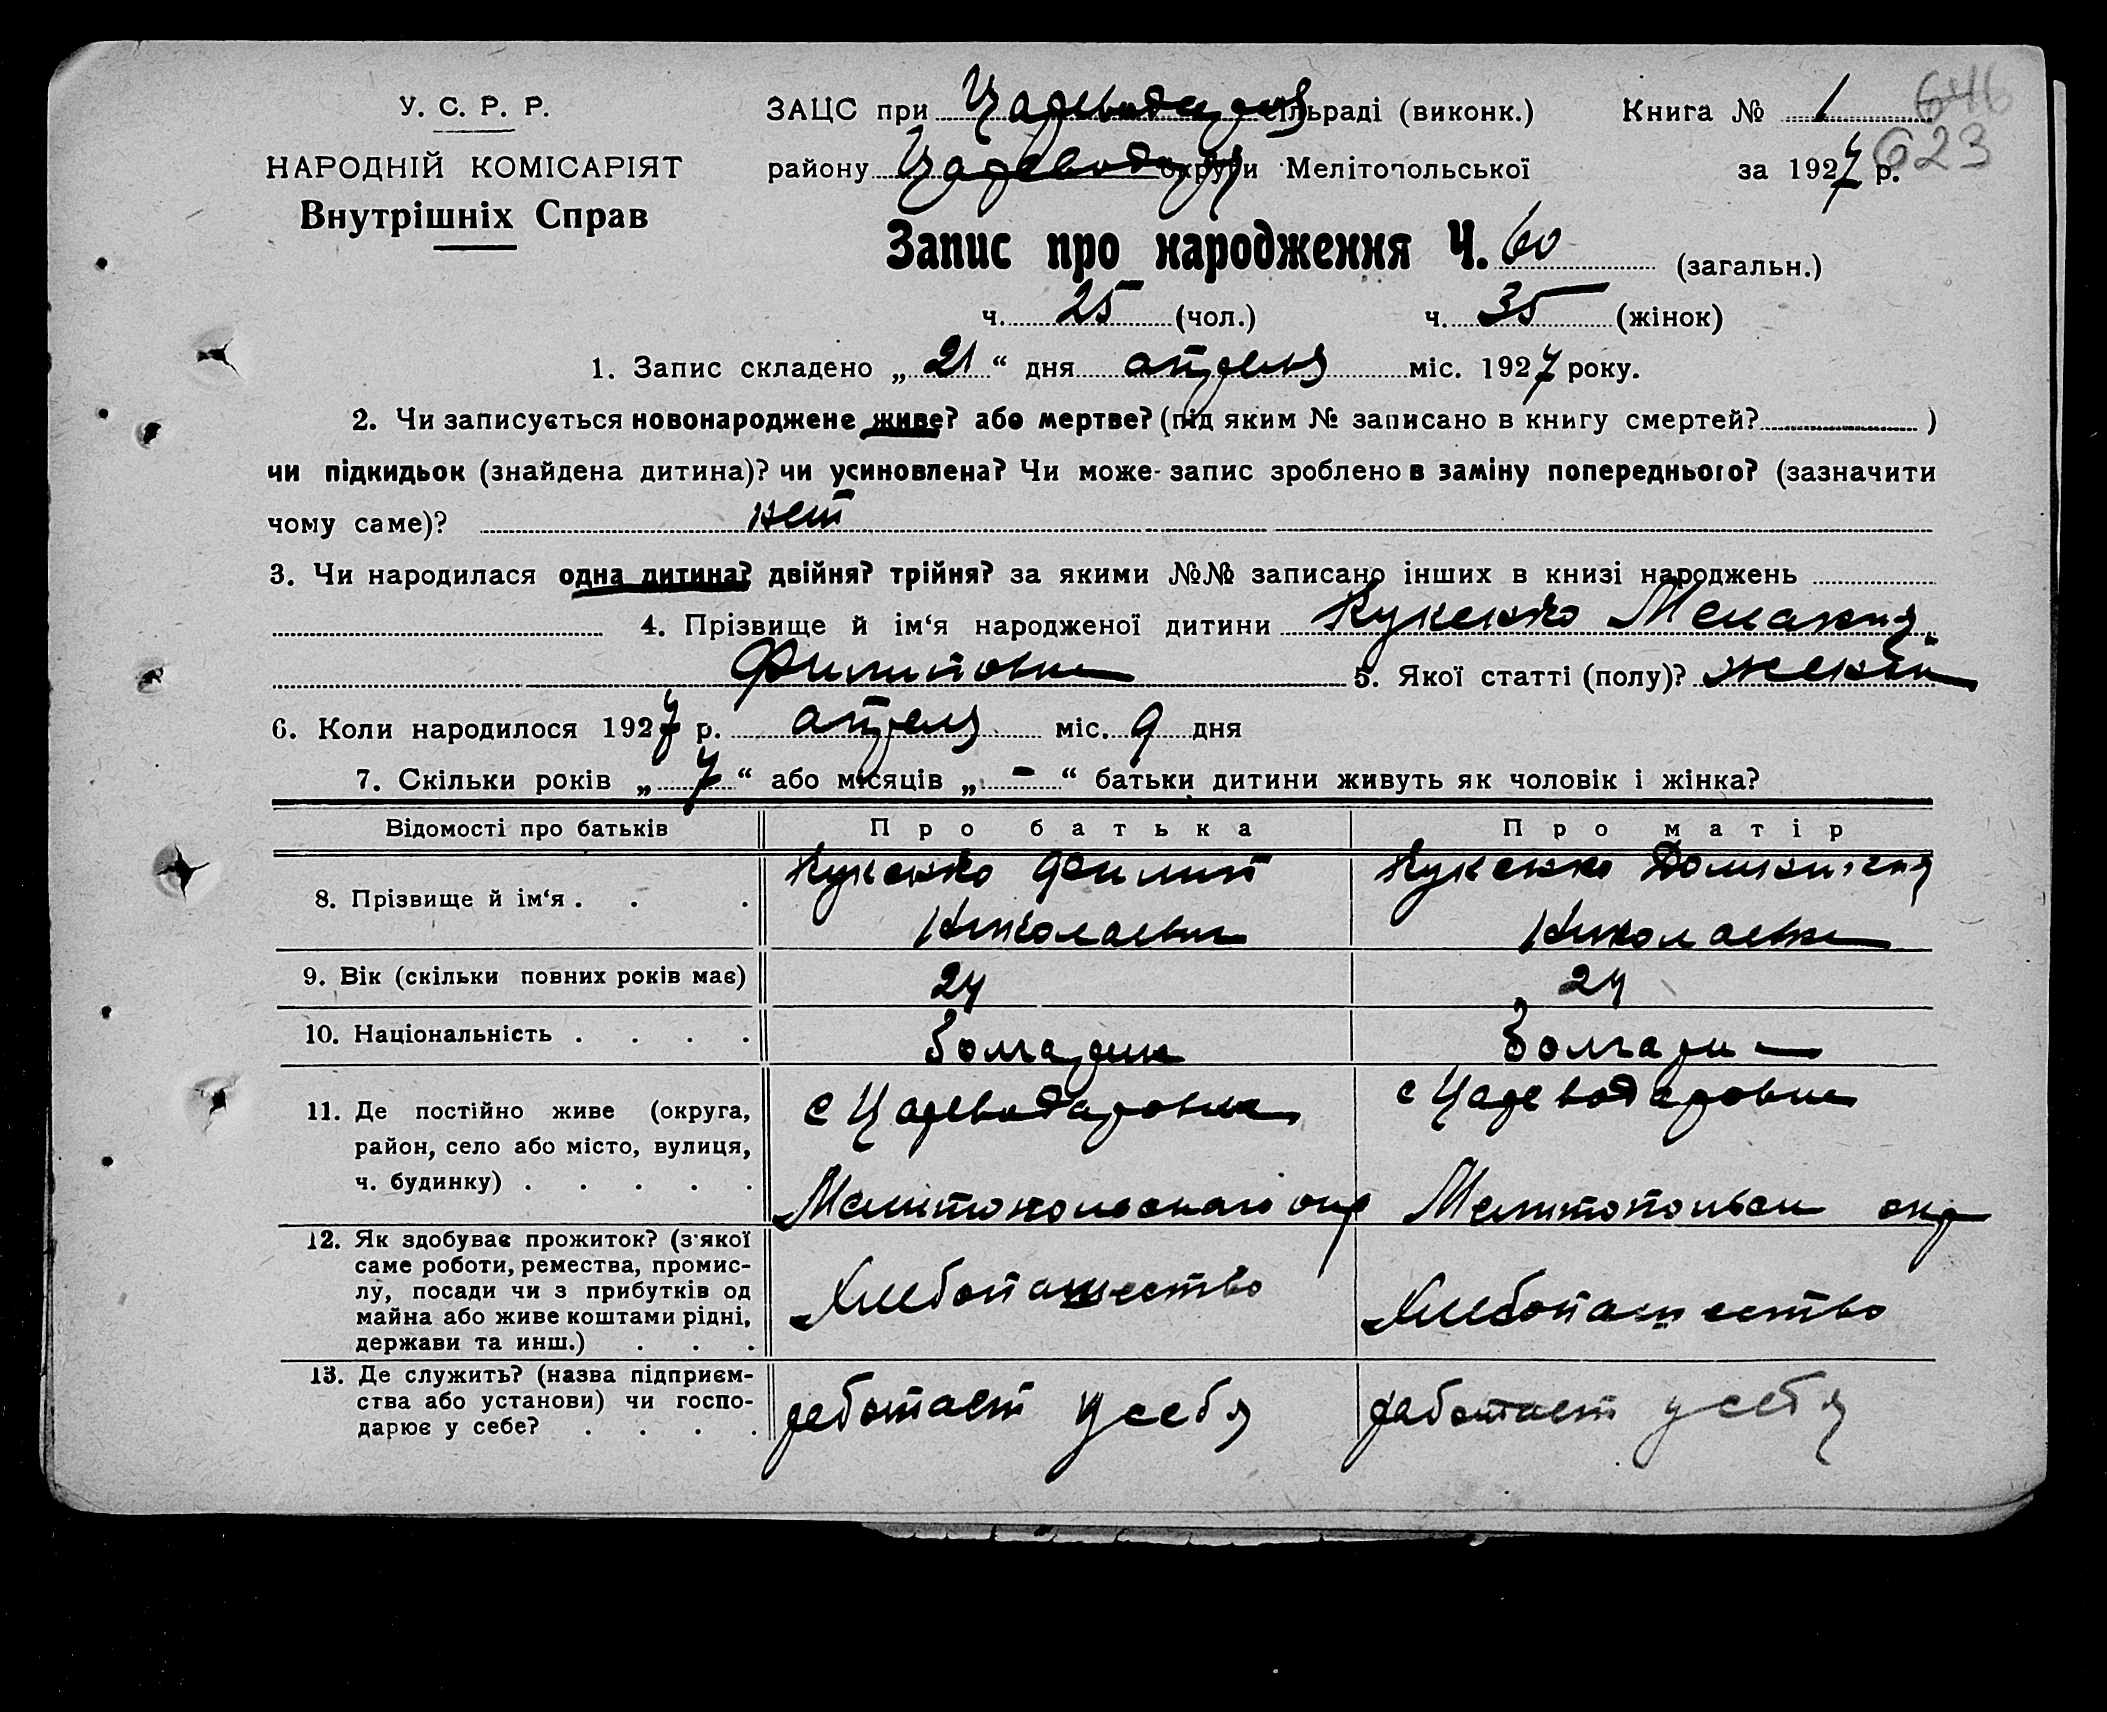 У. С. Р. Р.
НАРОДНІЙ КОМІСАРІЯТ
Внутрішніх Справ
ЗАЦС при Царевода сільраді (виконк.) Книга № 1
646
району Царевод округи Мелітопольської за 1927 р.
623
Запис про народження Ч. 60 (загальн.)
ч. 25 (чол.) ч. 35 (жінок)
1. Запис складено „ 21 “ дня апреля міс. 1927 року.
2. Чи записується новонароджене живе? або мертве? (під яким № записано в книгу смертей? )
чи підкидьок (знайдена дитина)? чи усиновлена? Чи може запис зроблено в заміну попереднього? (зазначити
чому саме)? нет
3. Чи народилася одна дитина? двійня? трійня? за якими №№ записано інших в книзі народжень
4. Прізвище й ім‘я народженої дитини
Филиповна 5. Якої статті (полу)? женск
6. Коли народилося 1927 р. апреля міс. 9 дня
7. Скільки років „ 7 “ або місяців „ - “ батьки дитини живуть як чоловік і жінка?
Відомості про батьків Про батька Про матір
8. Прізвище й ім‘я . . . Филип
Николаевич Николаевна
9. Вік (скільки повних років має) 24 24
10. Національність . . . . Болгарин Болгари
11. Де постійно живе (округа, с Цареводаровка с Цареводаровка
район, село або місто, вулиця,
ч. будинку) . . . . . Мелитопольского окр Мелитопольск окр
12. Як здобуває прожиток? (з‘якої
саме роботи, ремества, промис-
лу, посади чи з прибутків од Хлебопашество Хлебопашество
майна або живе коштами рідні,
держави та инш.) . . .
13. Де служить? (назва підприєм-
ства або установи) чи госпо- работает у себя работает у себя
дарює у себе? . . . .